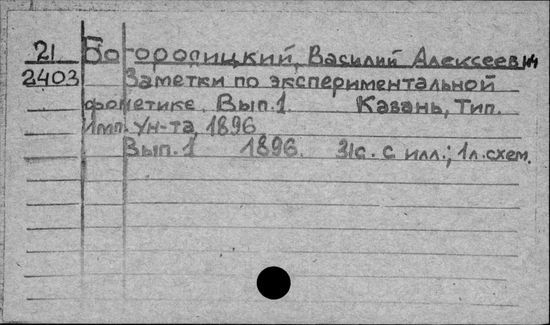 21 Богородицкий, Василий Алексеевич
2403 Заметки по экспериментальной
фонетике. Вып.1. Казань, Тип.
Имп. Ун-та, 1896
Вып.1 1896. 31с. с илл.; 1л.схем.